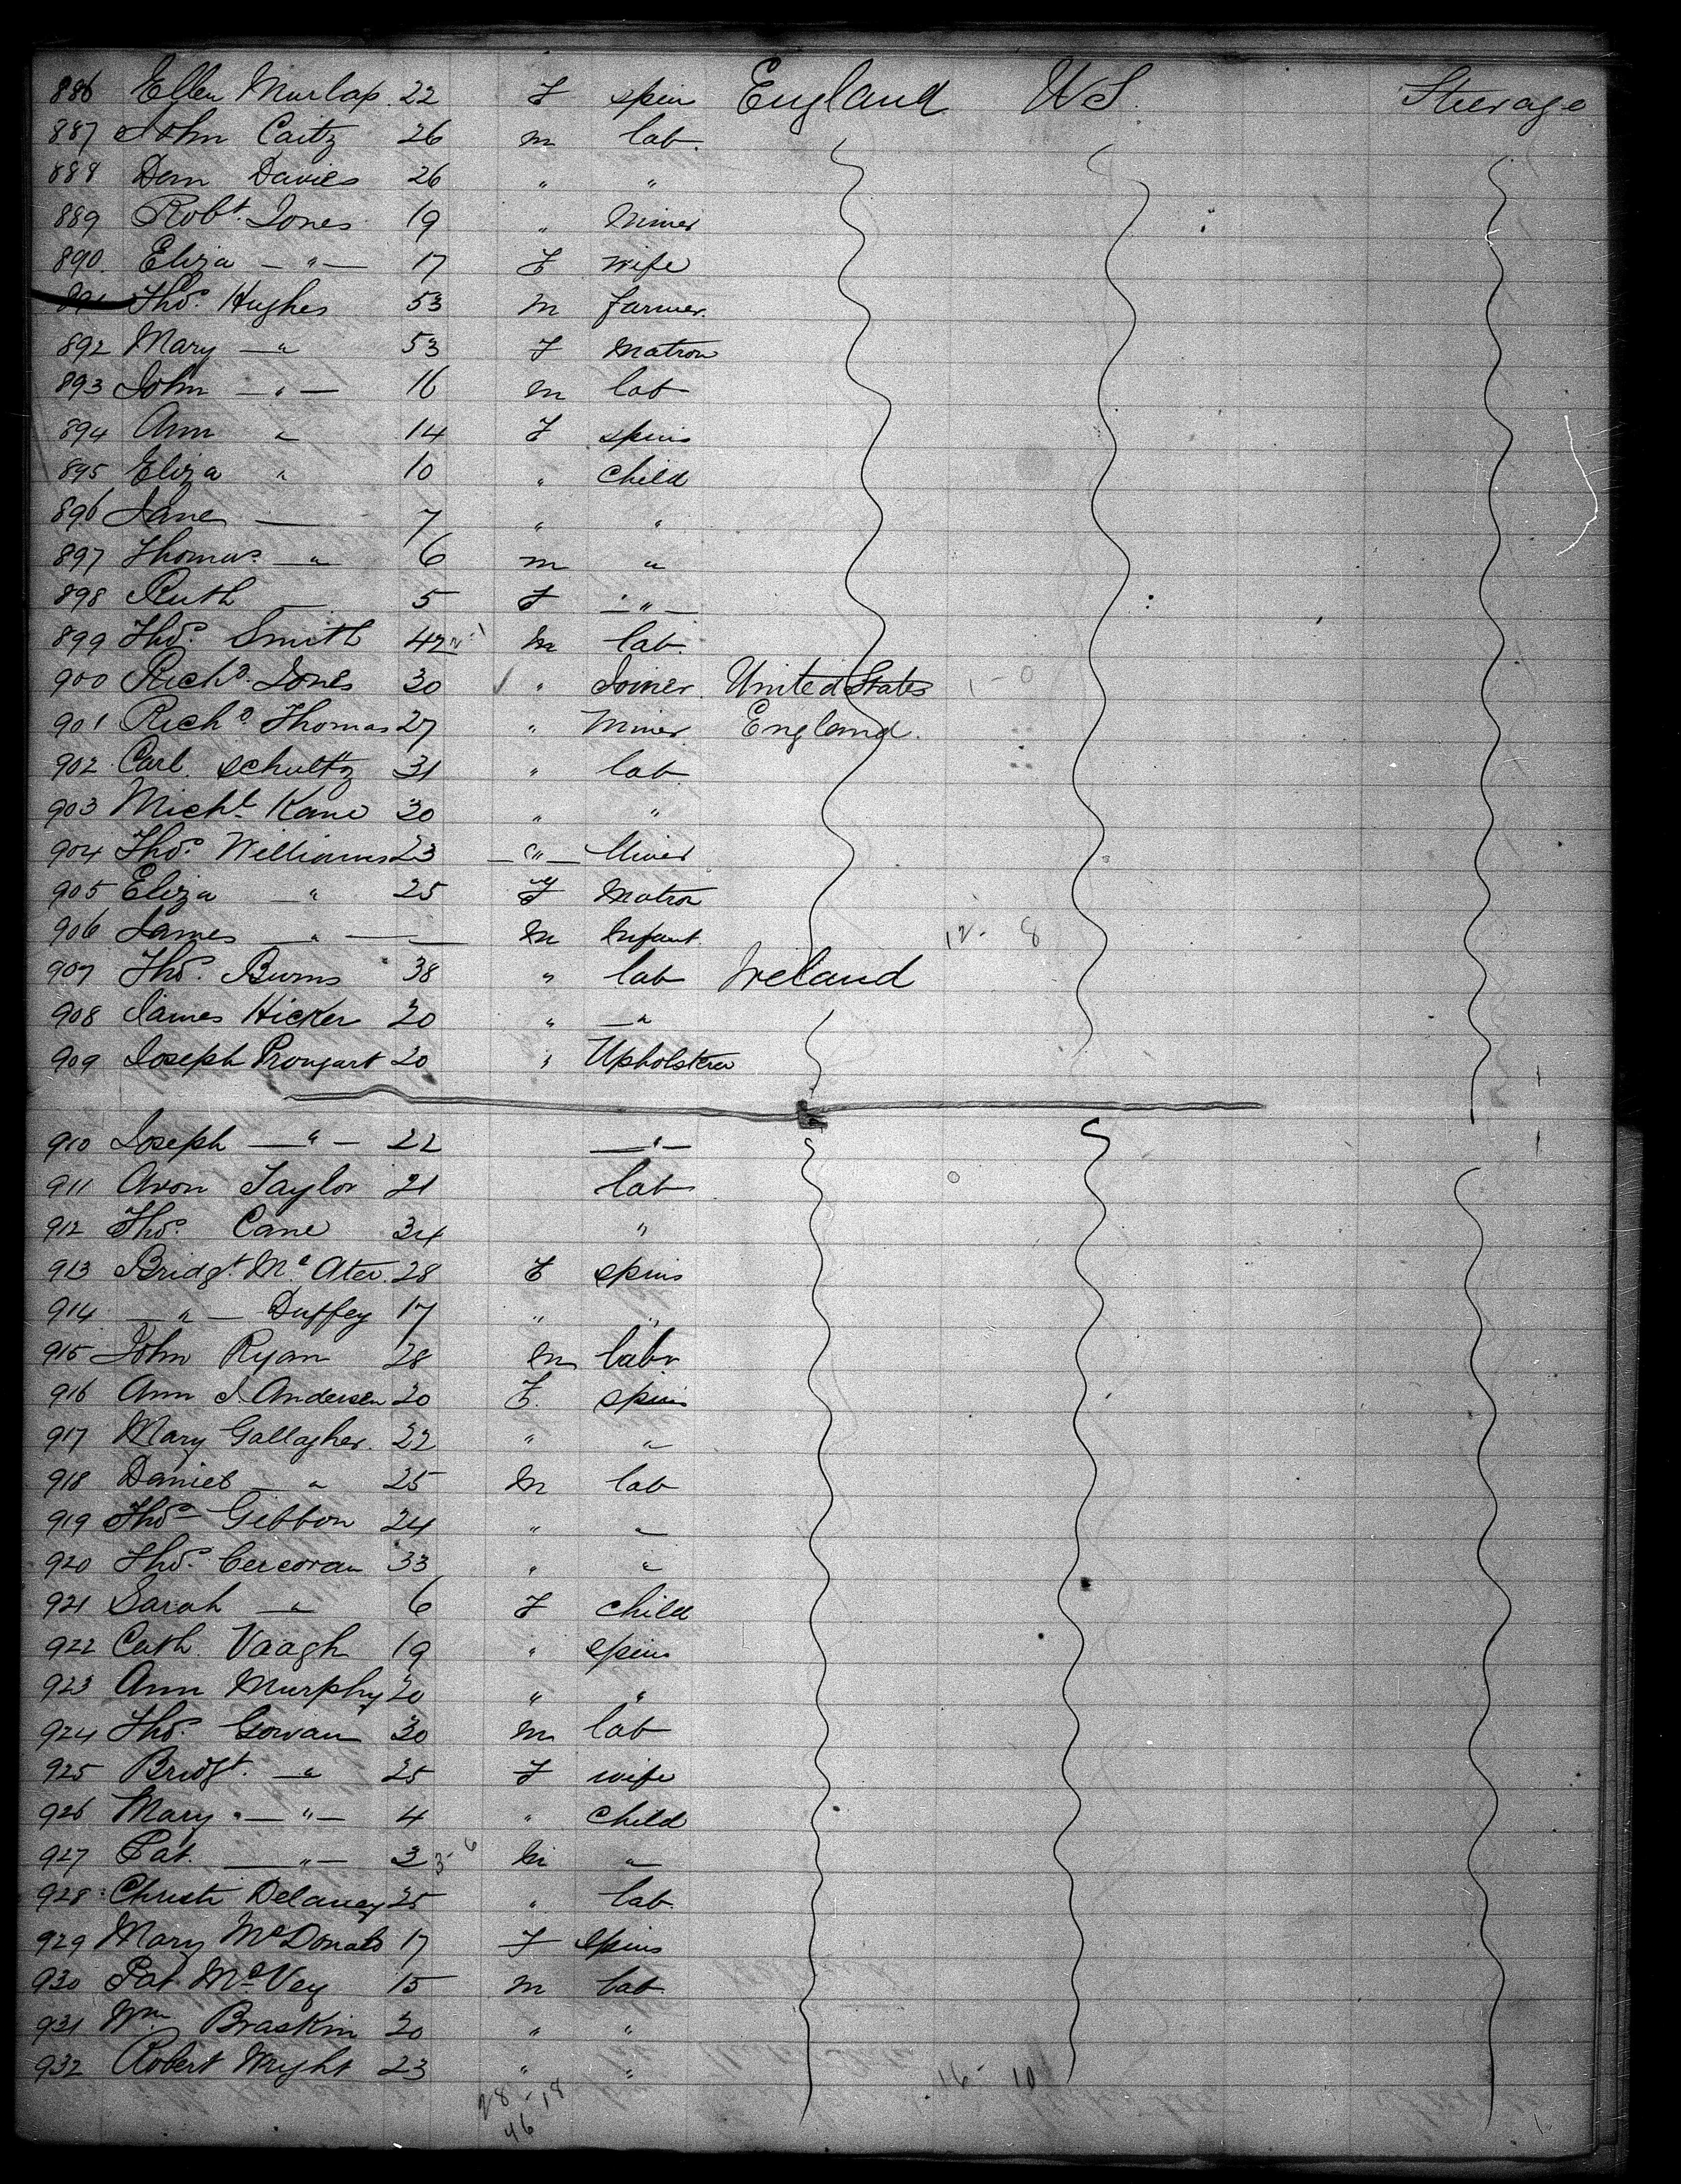 886 Ellen Murlap 22 F spin England US Steerage
887 John Caitz 26 m lab.
888 Dem Davies 26 " "
889 Robt. Jones 19 " Miner
890. Eliza — " — 17 F wife
891 Thos. Hughes 53 m farmer.
892 Mary — " 53 F Matron
893 John — " — 16 m lab
894 Ann " 14 F spins
895 Eliza " 10 " child
896 Jane — 7 " "
897 Thomas — " 6 m "
898 Ruth — 5 F — " —
899 Thos. Smith 42 2-1 m lab.
900 Richd. Jones 30 ✓ " Joiner United States 1 - 0
901 Richd. Thomas 27 " Miner England.
902 Carl. Schultz 31 " lab
903 Michl. Kane 30 " "
904 Thos. Williams 23 — " — Miner
905 Eliza — " 25 F Matron
906 James — " — — m Infant. 12 - 8
907 Thos. Burns 38 " lab Ireland
908 James Hicker 20 " — "
909 Joseph Prougart 20 " Upholsterer
910 Joseph — " — 22 — " —
911 Avon Taylor 21 lab
912 Thos. Cane 34 "
913 Bridgt. Mc Ater. 28 F spins
914 — " — Duffey 17 " "
915 John Ryan 28 m labr
916 Ann J. Andersen 20 F. spins
917 Mary Gallagher. 22 " "
918 Daniel — " 25 m lab
919 Thos Gibbon 24 " "
920 Thos. Corcoran 33 " "
921 Sarah — " 6 F child
922 Cath. Vaagh 19 " spins
923 Ann Murphy 20 " "
924 Thos. Gowan 30 m lab
925 Bridgt. — " 25 F wife
926 Mary — " — 4 " child
927 Pat. — " — 3 3-6 m "
928 Christ Delaney 25 " lab.
929 Mary McDonald 17 F spins
930 Pat McVey 15 m lab
931 Wm Braskin 20 " "
932 Robert Wright 23 " " 16 - 10
28 - 18
46